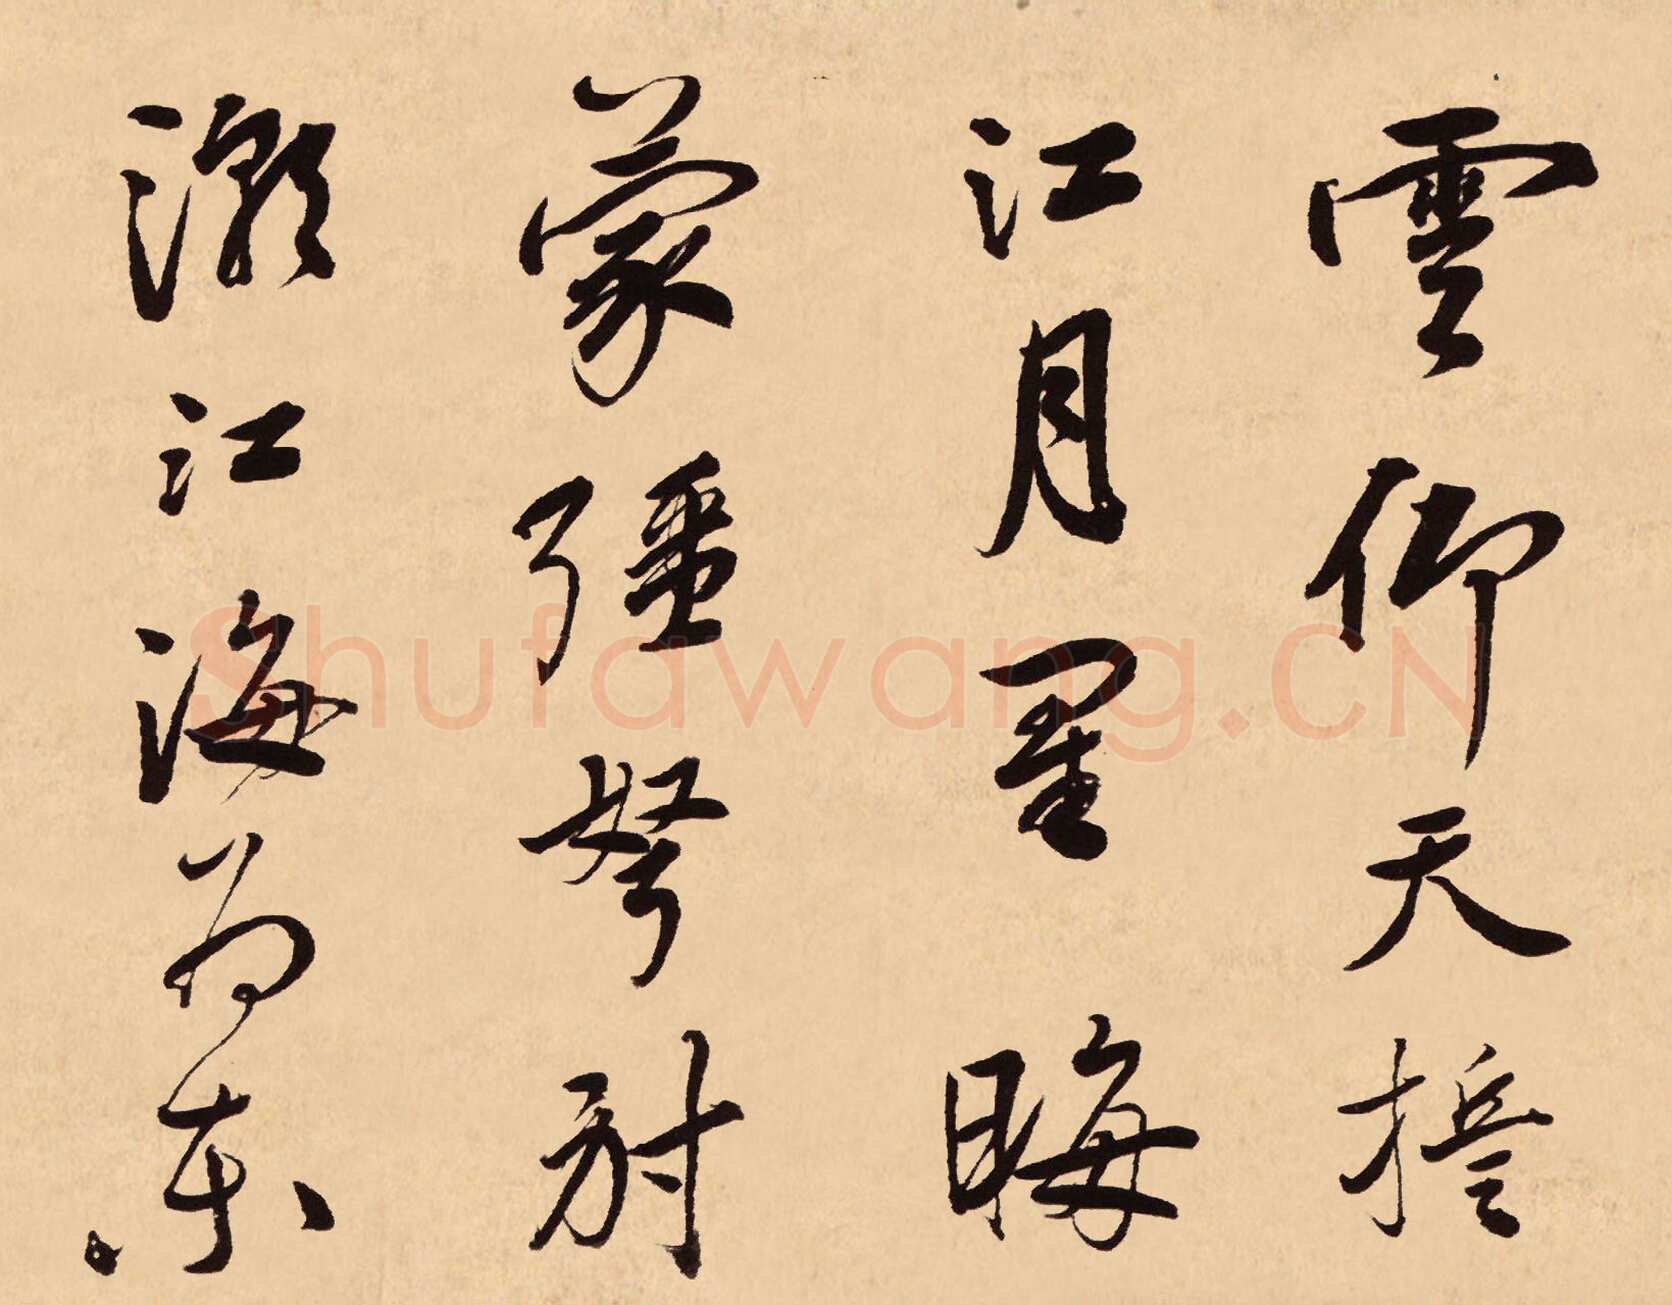 雲仰天誓
江月星晦
蒙彊弩射
潮江海為東
Shufawang.CN